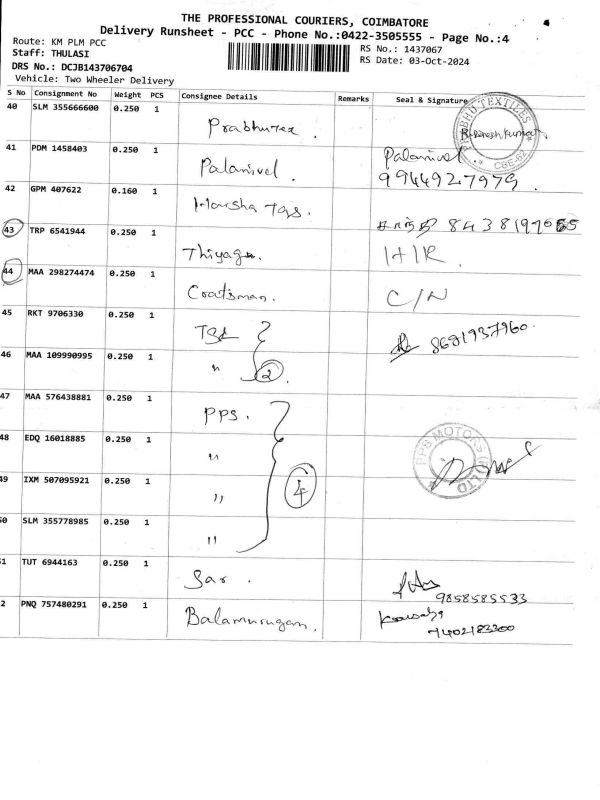 THE PROFESSIONAL COURIERS, COIMBATORE
Delivery Runsheet - PCC - Phone No.:0422-3505555 - Page No.:4
Route: KM PLM PCC
Staff: THULASI
DRS No.: DCJB143706704
Vehicle: Two Wheeler Delivery
RS No.: 1437067
RS Date: 03-Oct-2024
S No Consignment No Weight PCS Consignee Details Remarks Seal & Signature
40 SLM 355666600 0.250 1 Prabhutex.
PRABHU TEXTILES CBE-62
41 PDM 1458403 0.250 1 Palanivel. Palanivel
9944927979.
42 GPM 407622 0.160 1 Harsha Tqs.
43 TRP 6541944 0.250 1 Thiyag. H/R.
44 MAA 298274474 0.250 1 Coatsman. C/N
45 RKT 9706330 0.250 1 8681937960.
46 MAA 109990995 0.250 1 " 2.
47 MAA 576438881 0.250 1 PPS.
48 EDQ 16018885 0.250 1 " PPS MOTORS (P) LTD
49 IXM 507095921 0.250 1 " 4
50 SLM 355778985 0.250 1 "
51 TUT 6944163 0.250 1 Sar. 9858585533
52 PNQ 757480291 0.250 1 Balamurugan. 7402183300